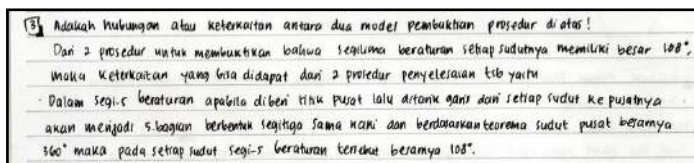 3. Adakah hubungan atau keterkaitan antara dua model pembuktian prosedur diatas!
Dari 2 prosedur untuk membuktikan bahwa segilima beraturan setiap sudutnya memiliki besar 108°,
maka keterkaitan yang bisa didapat dari 2 prosedur penyelesaian tsb yaitu
· Dalam segi-5 beraturan apabila diberi titik pusat lalu ditarik garis dari setiap sudut ke pusatnya
akan menjadi 5 bagian berbentuk segitiga sama kaki dan berdasarkan teorema sudut pusat besarnya
360° maka pada setiap sudut segi-5 beraturan tersebut besarnya 108°.